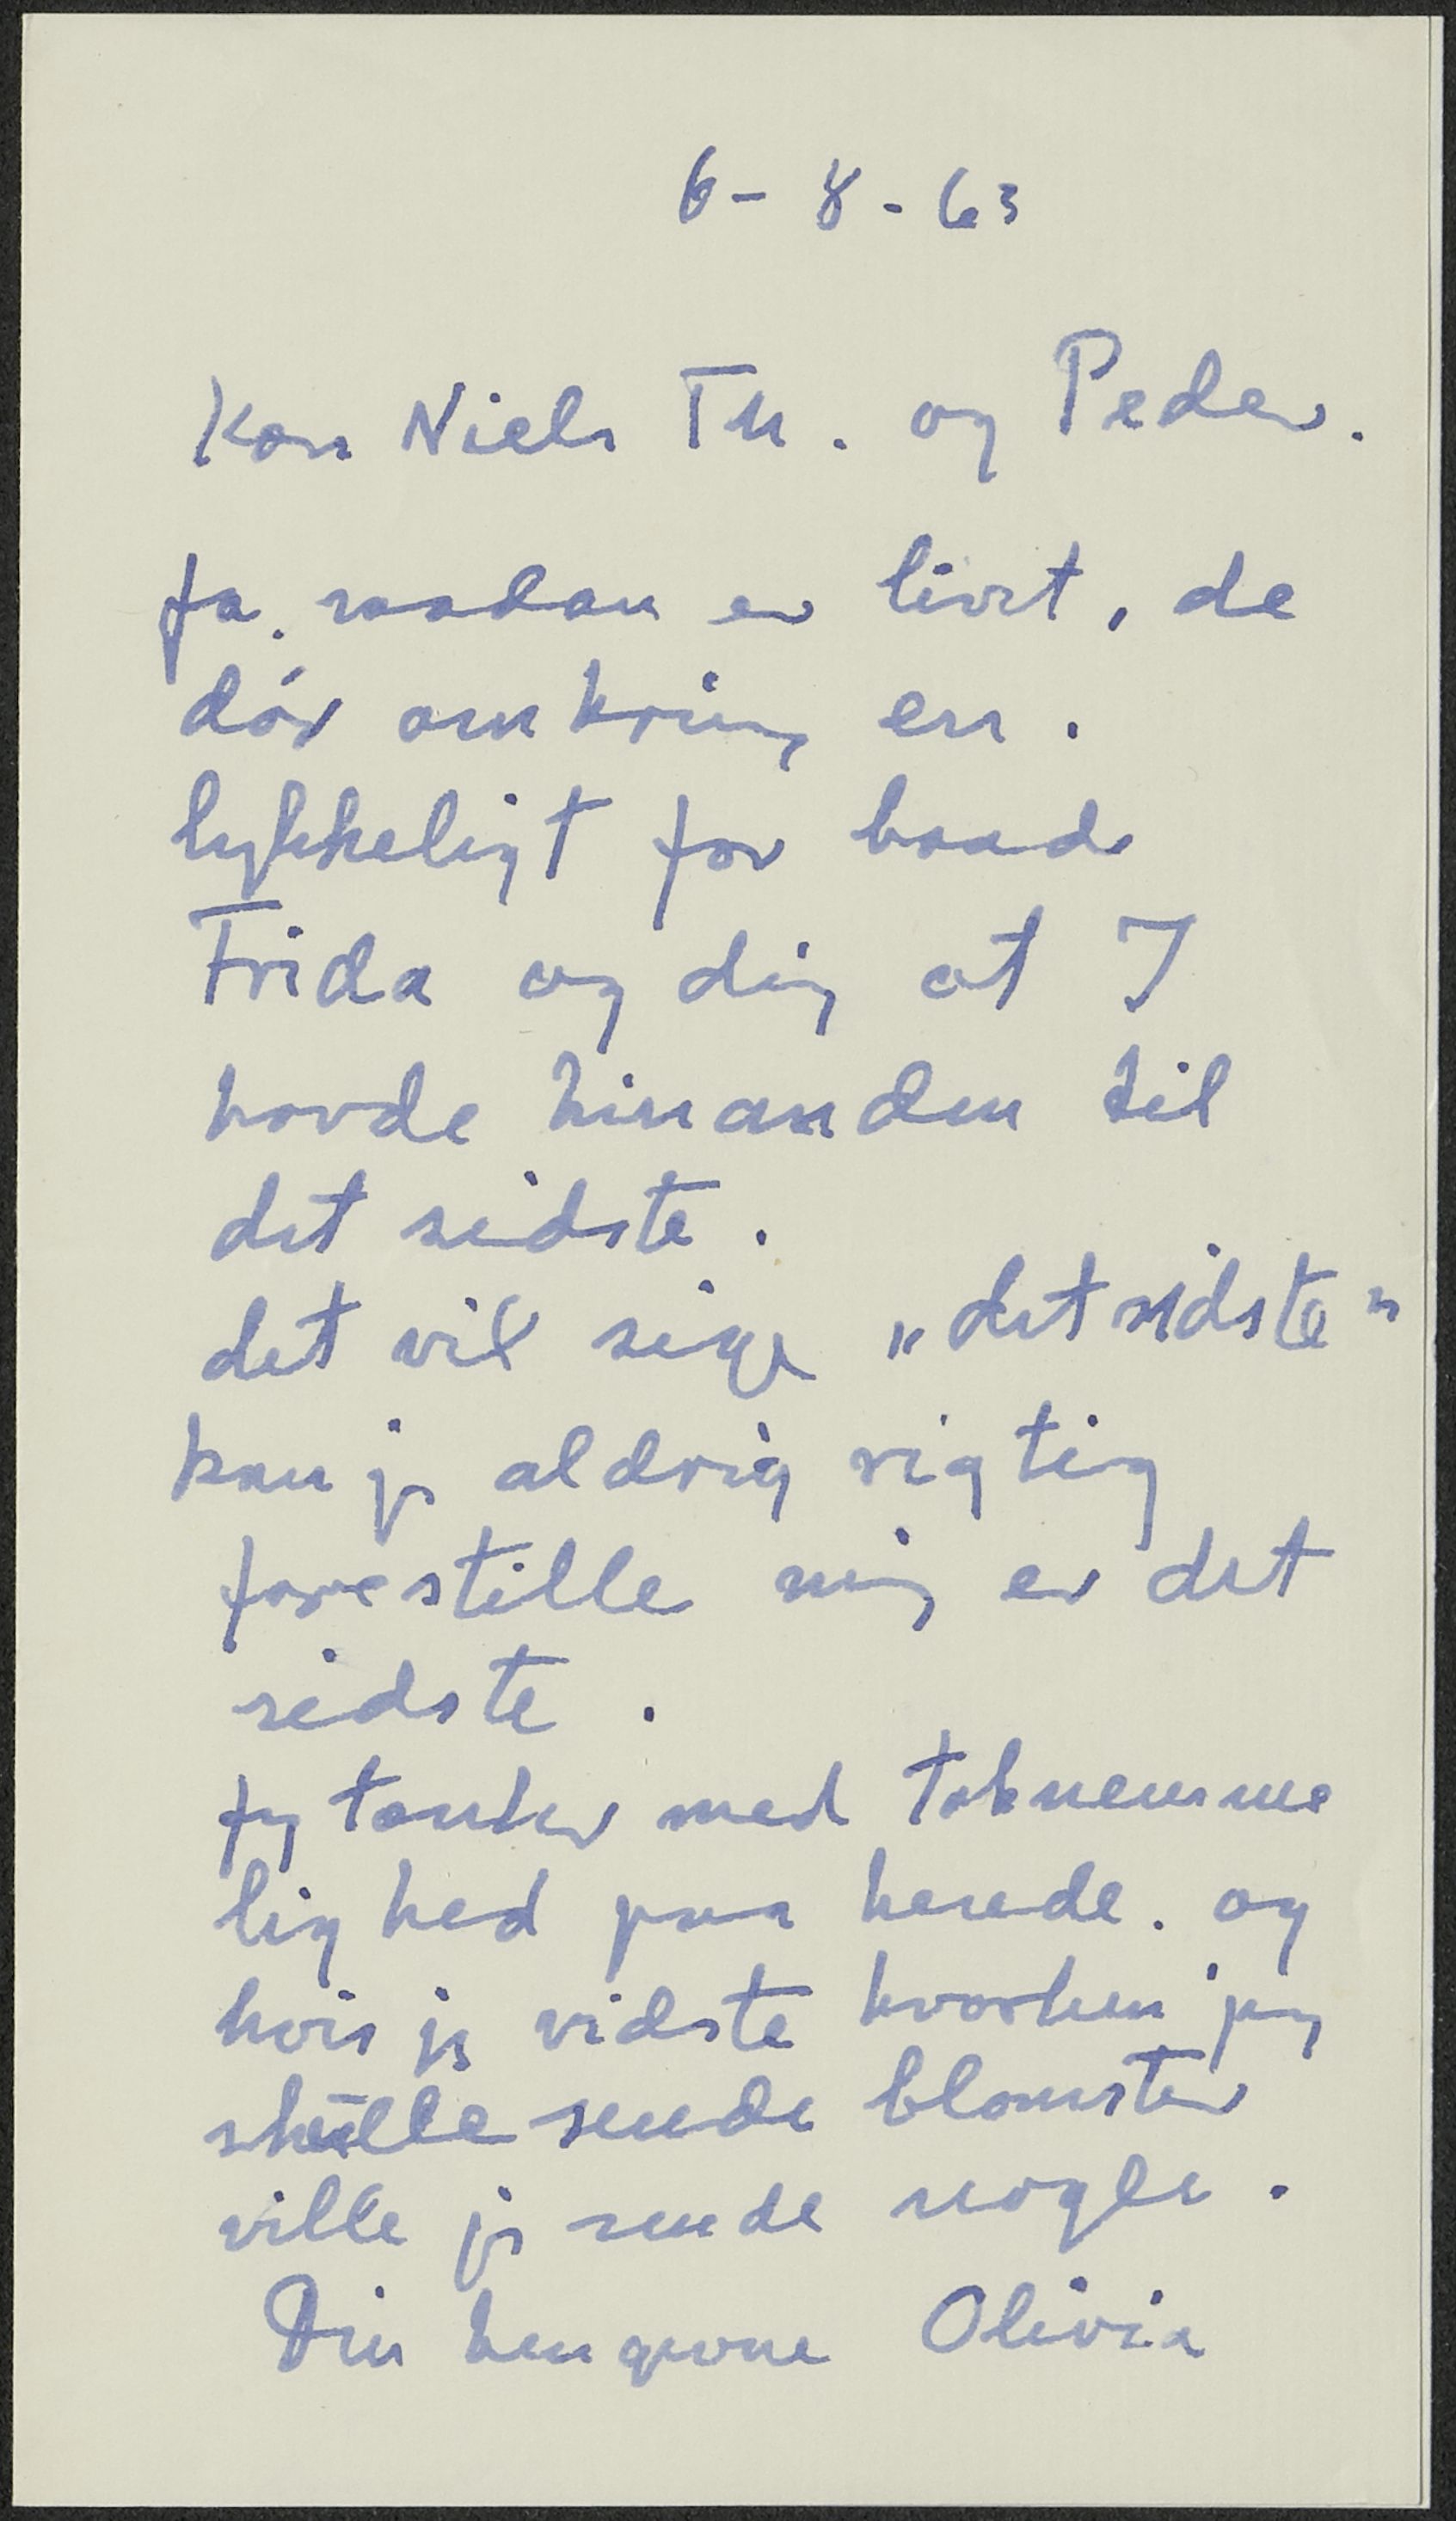 6-8-63
Kære Niels Th. og Peder.
Ja. saadan er livet, de
dør omkring en.
lykkeligt for baade
Frida og dig at I
havde hinanden til
det sidste.
det vil sige „det sidste"
kan jeg aldrig rigtig
forestille mig er det
sidste.
Jeg tænker med taknemme
lighed paa hende. og
hvis jeg vidste hvorhen jeg
skulle sende blomster
ville jeg sende nogle.
Din hengivne Olivia